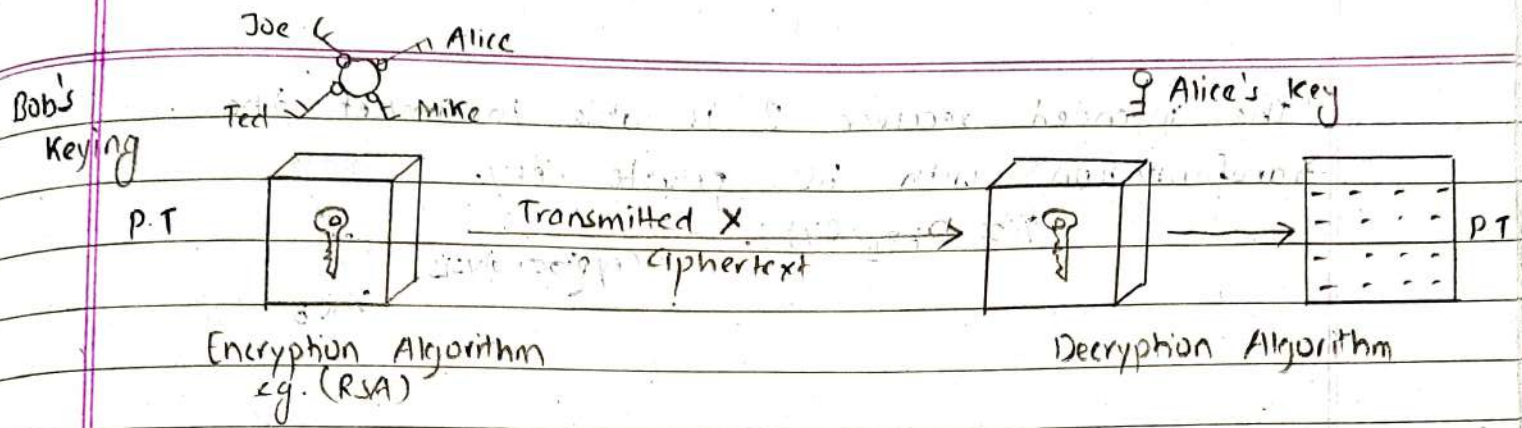 Joe Alice
Bob's Keying
Ted Mike
Alice's Key
P.T
Transmitted X
Ciphertext
P T
Encryption Algorithm
eg. (RSA)
Decryption Algorithm